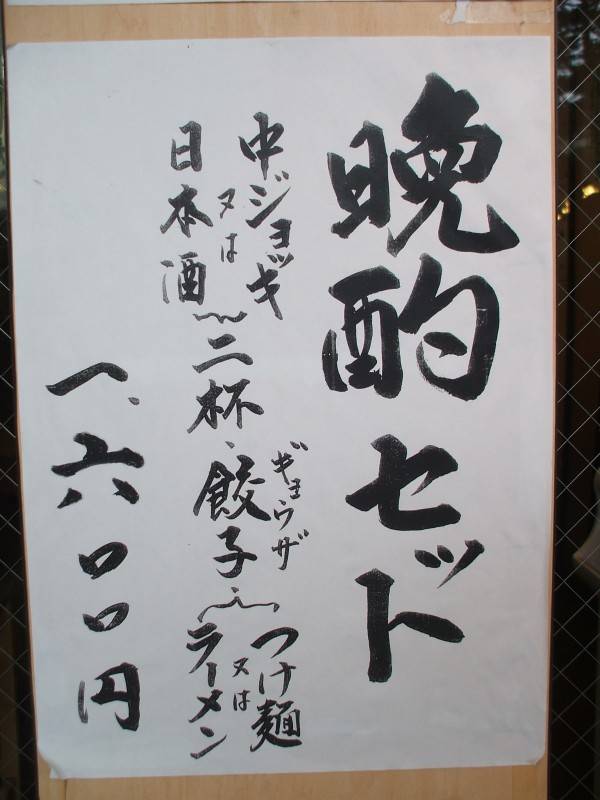 晩酌セット
中ジョッキ
又は
日本酒
二杯、餃子、
ギョウザ
つけ麺
又は
ラーメン
一、六〇〇円